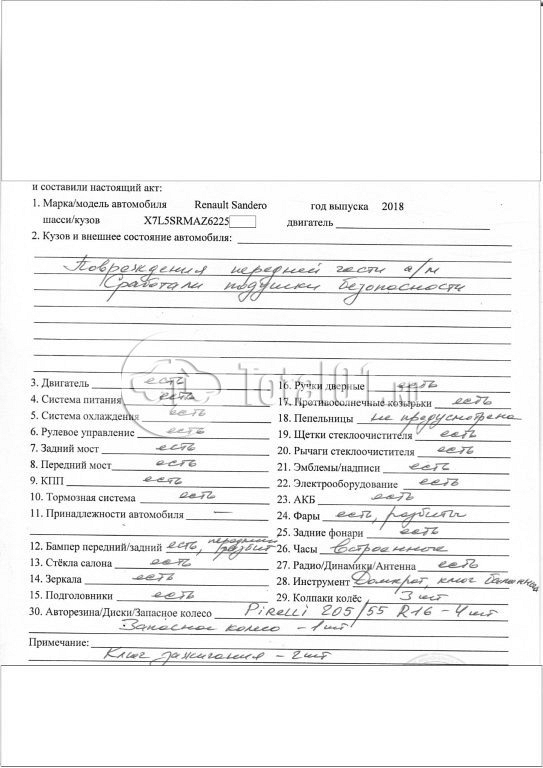 и составили настоящий акт:
1. Марка/модель автомобиля Renault Sandero год выпуска 2018
шасси/кузов X7L5SRMAZ6225 двигатель
2. Кузов и внешнее состояние автомобиля:
Повреждения передней части а/м
Сработали подушки безопасности
Total01.ru
3. Двигатель есть
16. Ручки дверные есть
4. Система питания есть
17. Противосолнечные козырьки есть
5. Система охлаждения есть
18. Пепельницы не предусмотрена
6. Рулевое управление есть
19. Щетки стеклоочистителя есть
7. Задний мост есть
20. Рычаги стеклоочистителя есть
8. Передний мост есть
21. Эмблемы/надписи есть
9. КПП есть
22. Электрооборудование есть
10. Тормозная система есть
23. АКБ есть
11. Принадлежности автомобиля
24. Фары есть, разбиты
25. Задние фонари есть
12. Бампер передний/задний есть, передний разбит
26. Часы встроенное
13. Стёкла салона есть
27. Радио/Динамики/Антенна есть
14. Зеркала есть
28. Инструмент Домкрат, ключ
15. Подголовники есть
29. Колпаки колёс 3 шт
30. Авторезина/Диски/Запасное колесо Pirelli 205/55 R16 - 4 шт
Запасное колесо - 1 шт
Примечание:
Ключ зажигания - 2 шт